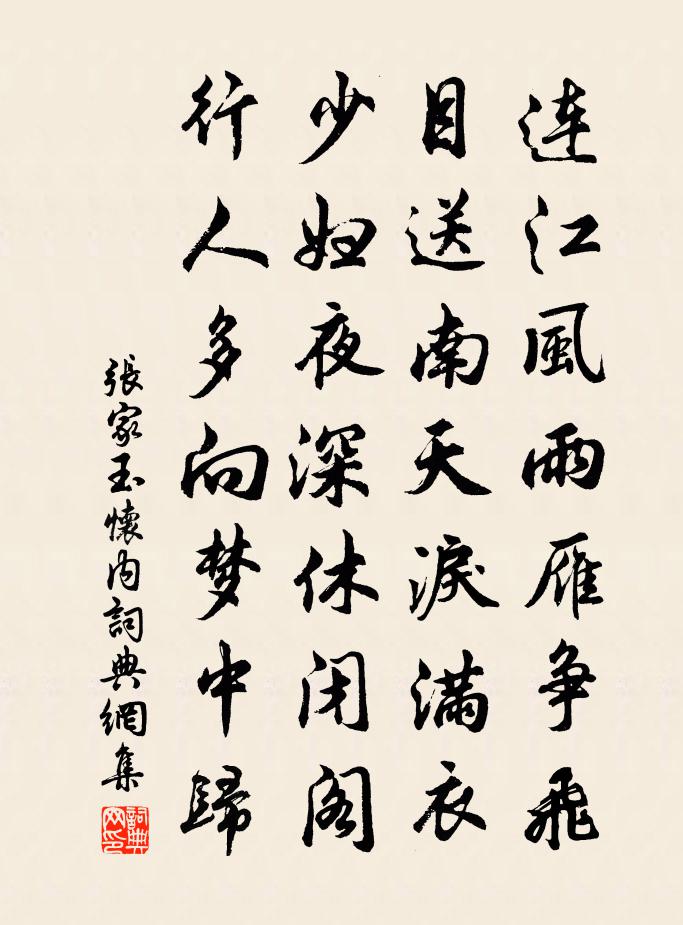 连江風雨雁争飛
目送南天淚滿衣
少妇夜深休闭阁
行人多向梦中歸
張家玉懷内詞典網集
詞典
网印